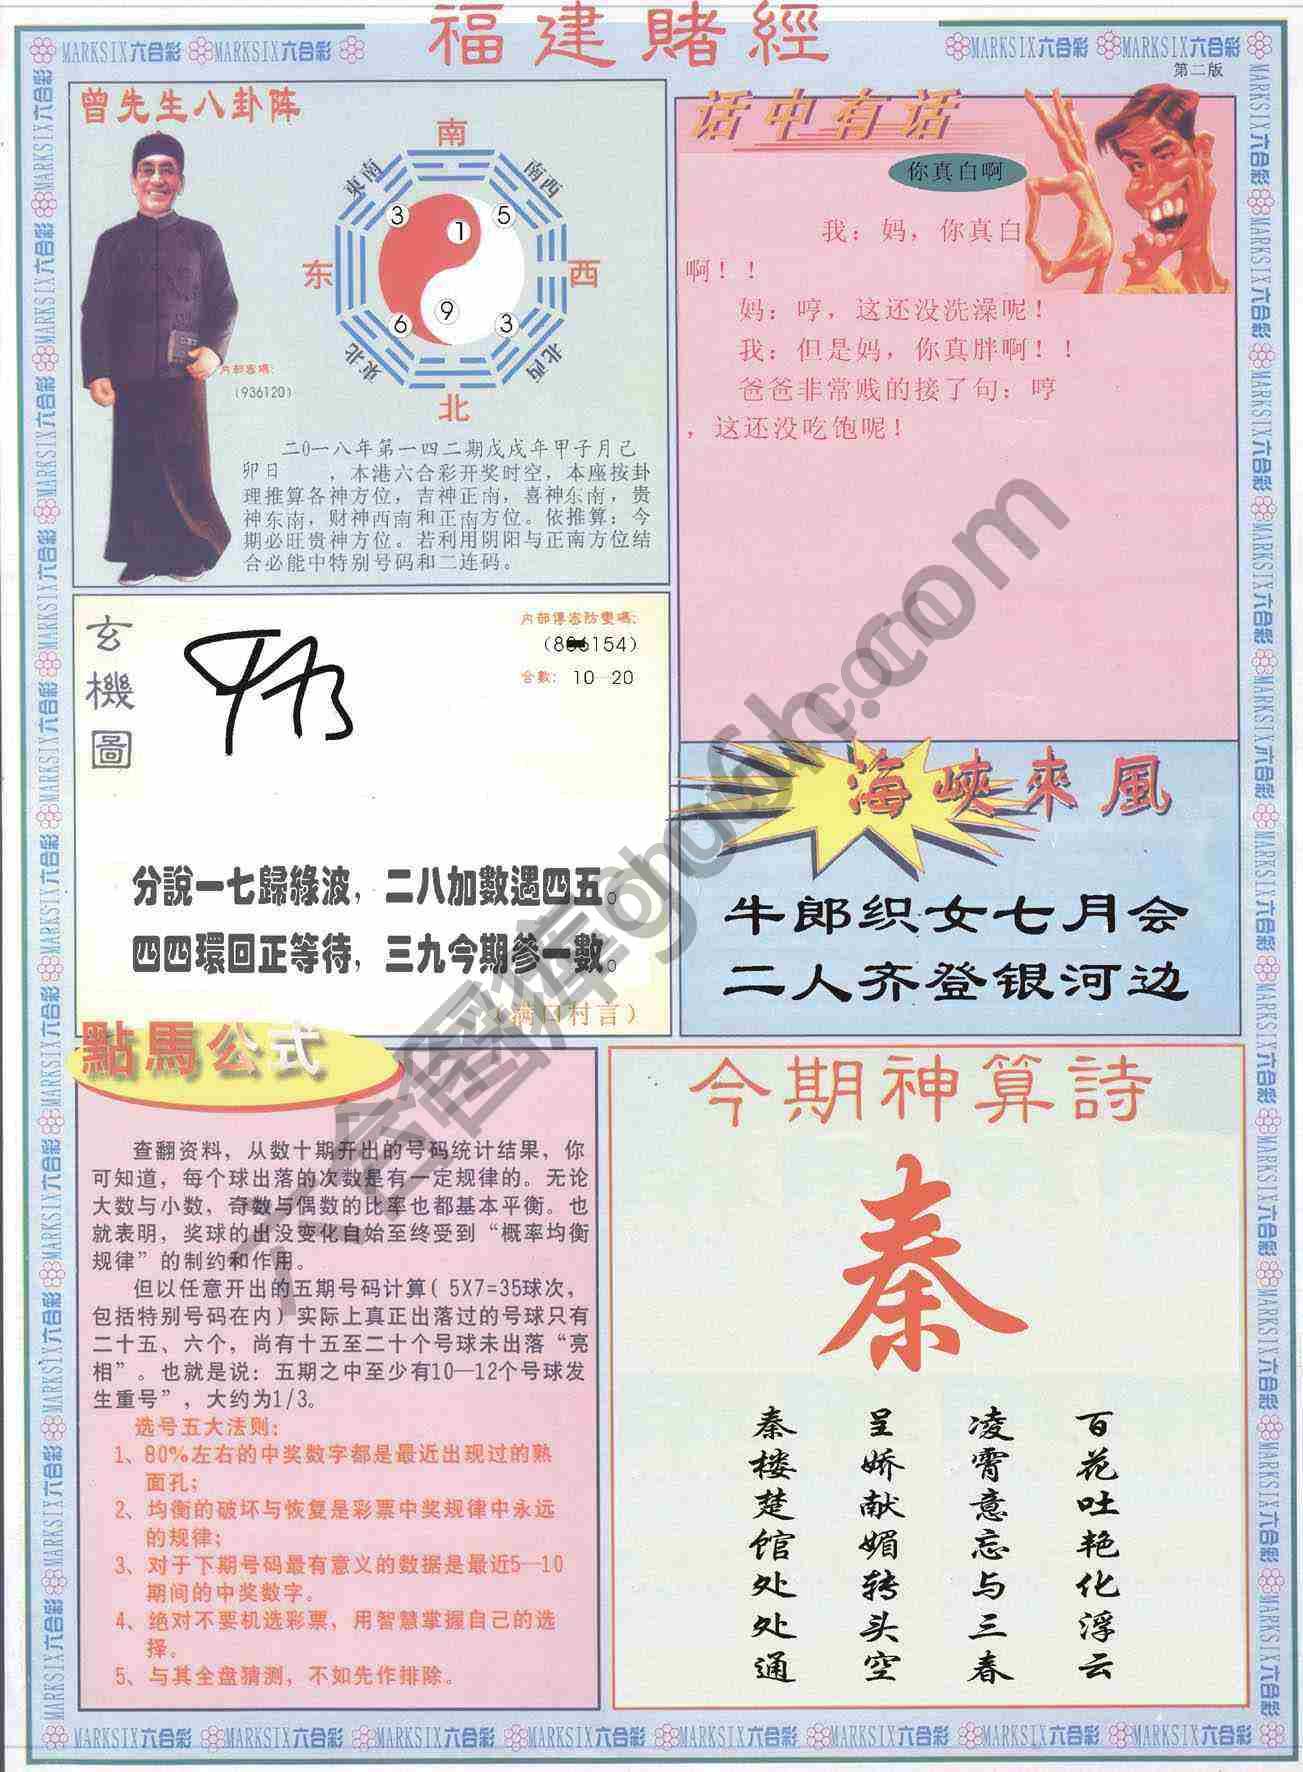 福建賭經
MARKSIX六合彩 MARKSIX六合彩
MARKSIX六合彩 MARKSIX六合彩
第二版
曾先生八卦阵
南
東南
南西
3
5
1
东
西
9
6
3
東北
北西
北
内部密碼:
(936120)
二0一八年第一四二期戊戌年甲子月己
卯日　　，本港六合彩开奖时空，本座按卦
理推算各神方位，吉神正南，喜神东南，贵
神东南，财神西南和正南方位。依推算：今
期必旺贵神方位。若利用阴阳与正南方位结
合必能中特别号码和二连码。
话中有话
你真白啊
我：妈，你真白
啊！！
妈：哼，这还没洗澡呢！
我：但是妈，你真胖啊！！
爸爸非常贱的接了句：哼
，这还没吃饱呢！
玄機圖
内部傳密防變碼:
合數: 10—20
分說一七歸綠波，二八加數遇四五。
四四環回正等待，三九今期參一數。
（满口村言）
海峽來風
牛郎织女七月会
二人齐登银河边
點馬公式
查翻资料，从数十期开出的号码统计结果，你
可知道，每个球出落的次数是有一定规律的。无论
大数与小数，奇数与偶数的比率也都基本平衡。也
就表明，奖球的出没变化自始至终受到“概率均衡
规律”的制约和作用。
但以任意开出的五期号码计算( 5X7=35球次，
包括特别号码在内)实际上真正出落过的号球只有
二十五、六个，尚有十五至二十个号球未出落“亮
相”。也就是说：五期之中至少有10—12个号球发
生重号”，大约为1/3。
选号五大法则：
1、80%左右的中奖数字都是最近出现过的熟
面孔；
2、均衡的破坏与恢复是彩票中奖规律中永远
的规律；
3、对于下期号码最有意义的数据是最近5—10
期间的中奖数字。
4、绝对不要机选彩票，用智慧掌握自己的选
择。
5、与其全盘猜测，不如先作排除。
今期神算詩
秦
百花吐艳化浮云
凌霄意忘与三春
呈娇献媚转头空
秦楼楚馆处处通
MARKSIX六合彩 MARKSIX六合彩 MARKSIX六合彩 MARKSIX六合彩 MARKSIX六合彩 MARKSIX六合彩 MARKSIX六合彩 MARKSIX六合彩